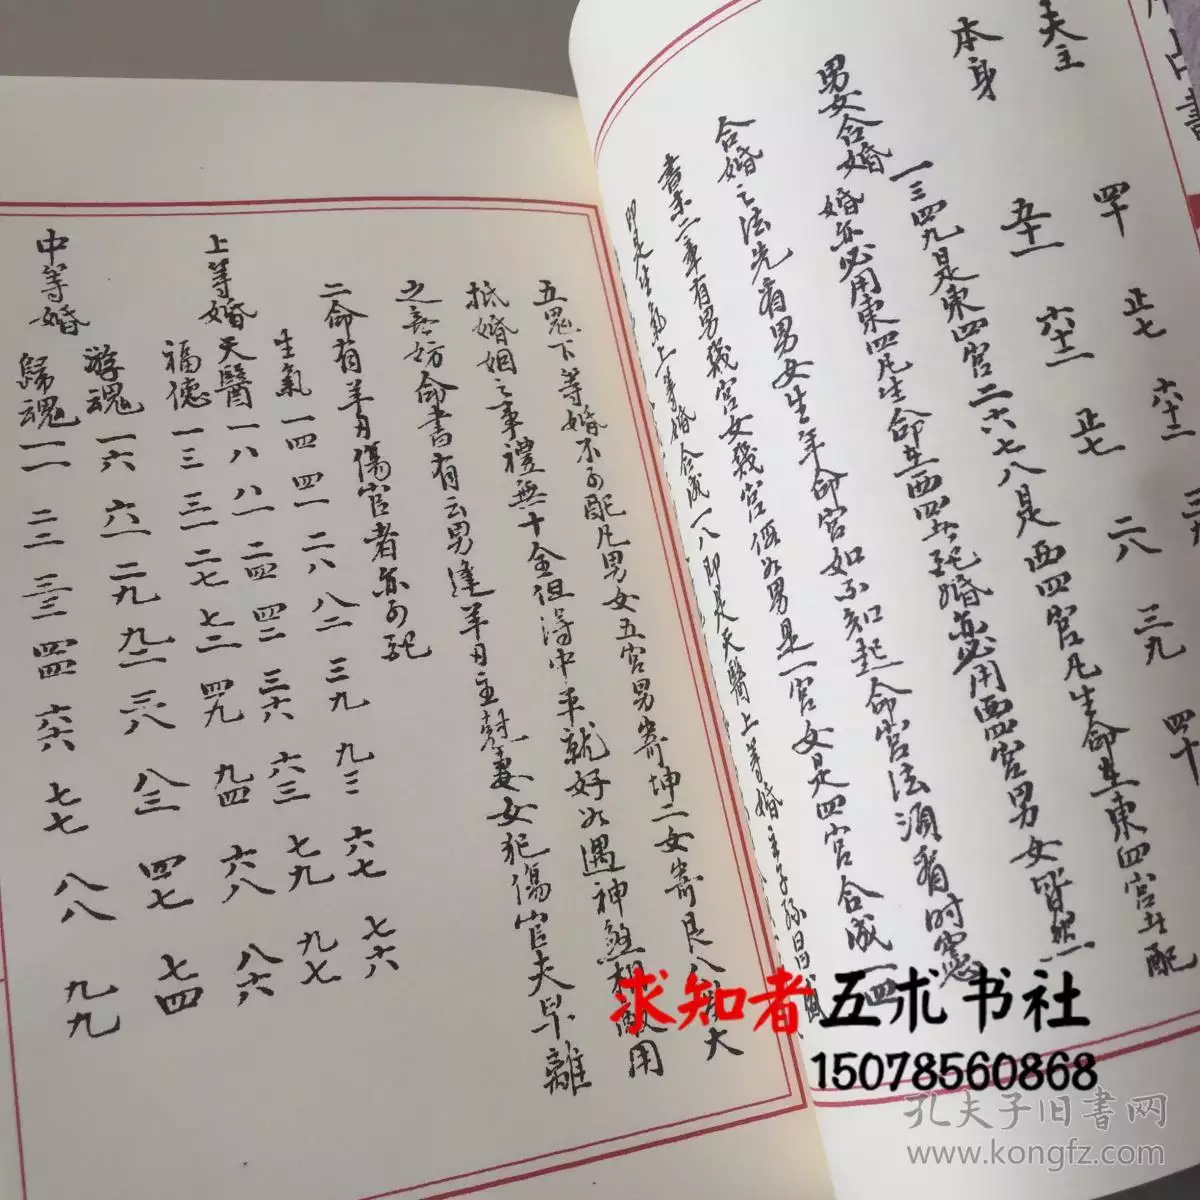 占書
夫主 四十 正七 六十二 三九
本身 五十一 六十二 正七 二八 三九 四十
男女合婚 一三四九是東四宮二六七八是西四宮凡生命在東四宮者配
婚亦必用東四凡生命在西四者配婚亦必用西四宮男女皆然
合婚之法先有男女生年命宮如不知起命宮法須看時憲
書末二章有男幾宮女幾宮假如男是一宮女是四宮合成一四
即是生氣上等婚合成一八即是天醫上等婚主子孫昌盛
五鬼下等婚不可配凡男女五宮男寄坤二女寄艮八大
抵婚姻之事禮無十全但得中平就好如遇神煞相敵用
之無妨命書有云男逢羊刃主尅妻女犯傷官夫早離
二命有羊刃傷官者亦可配
生氣 一四 四一 二八 八二 三九 九三 六七 七六
上等婚 天醫 一八 八一 二四 四二 三六 六三 七九 九七
福德 一三 三一 二七 七二 四九 九四 六八 八六
中等婚 游魂 一六 六一 二九 九二 三八 八三 四七 七四
歸魂 一一 二二 三三 四四 六六 七七 八八 九九
求知者五术书社
15078560868
孔夫子旧书网
www.kongfz.com